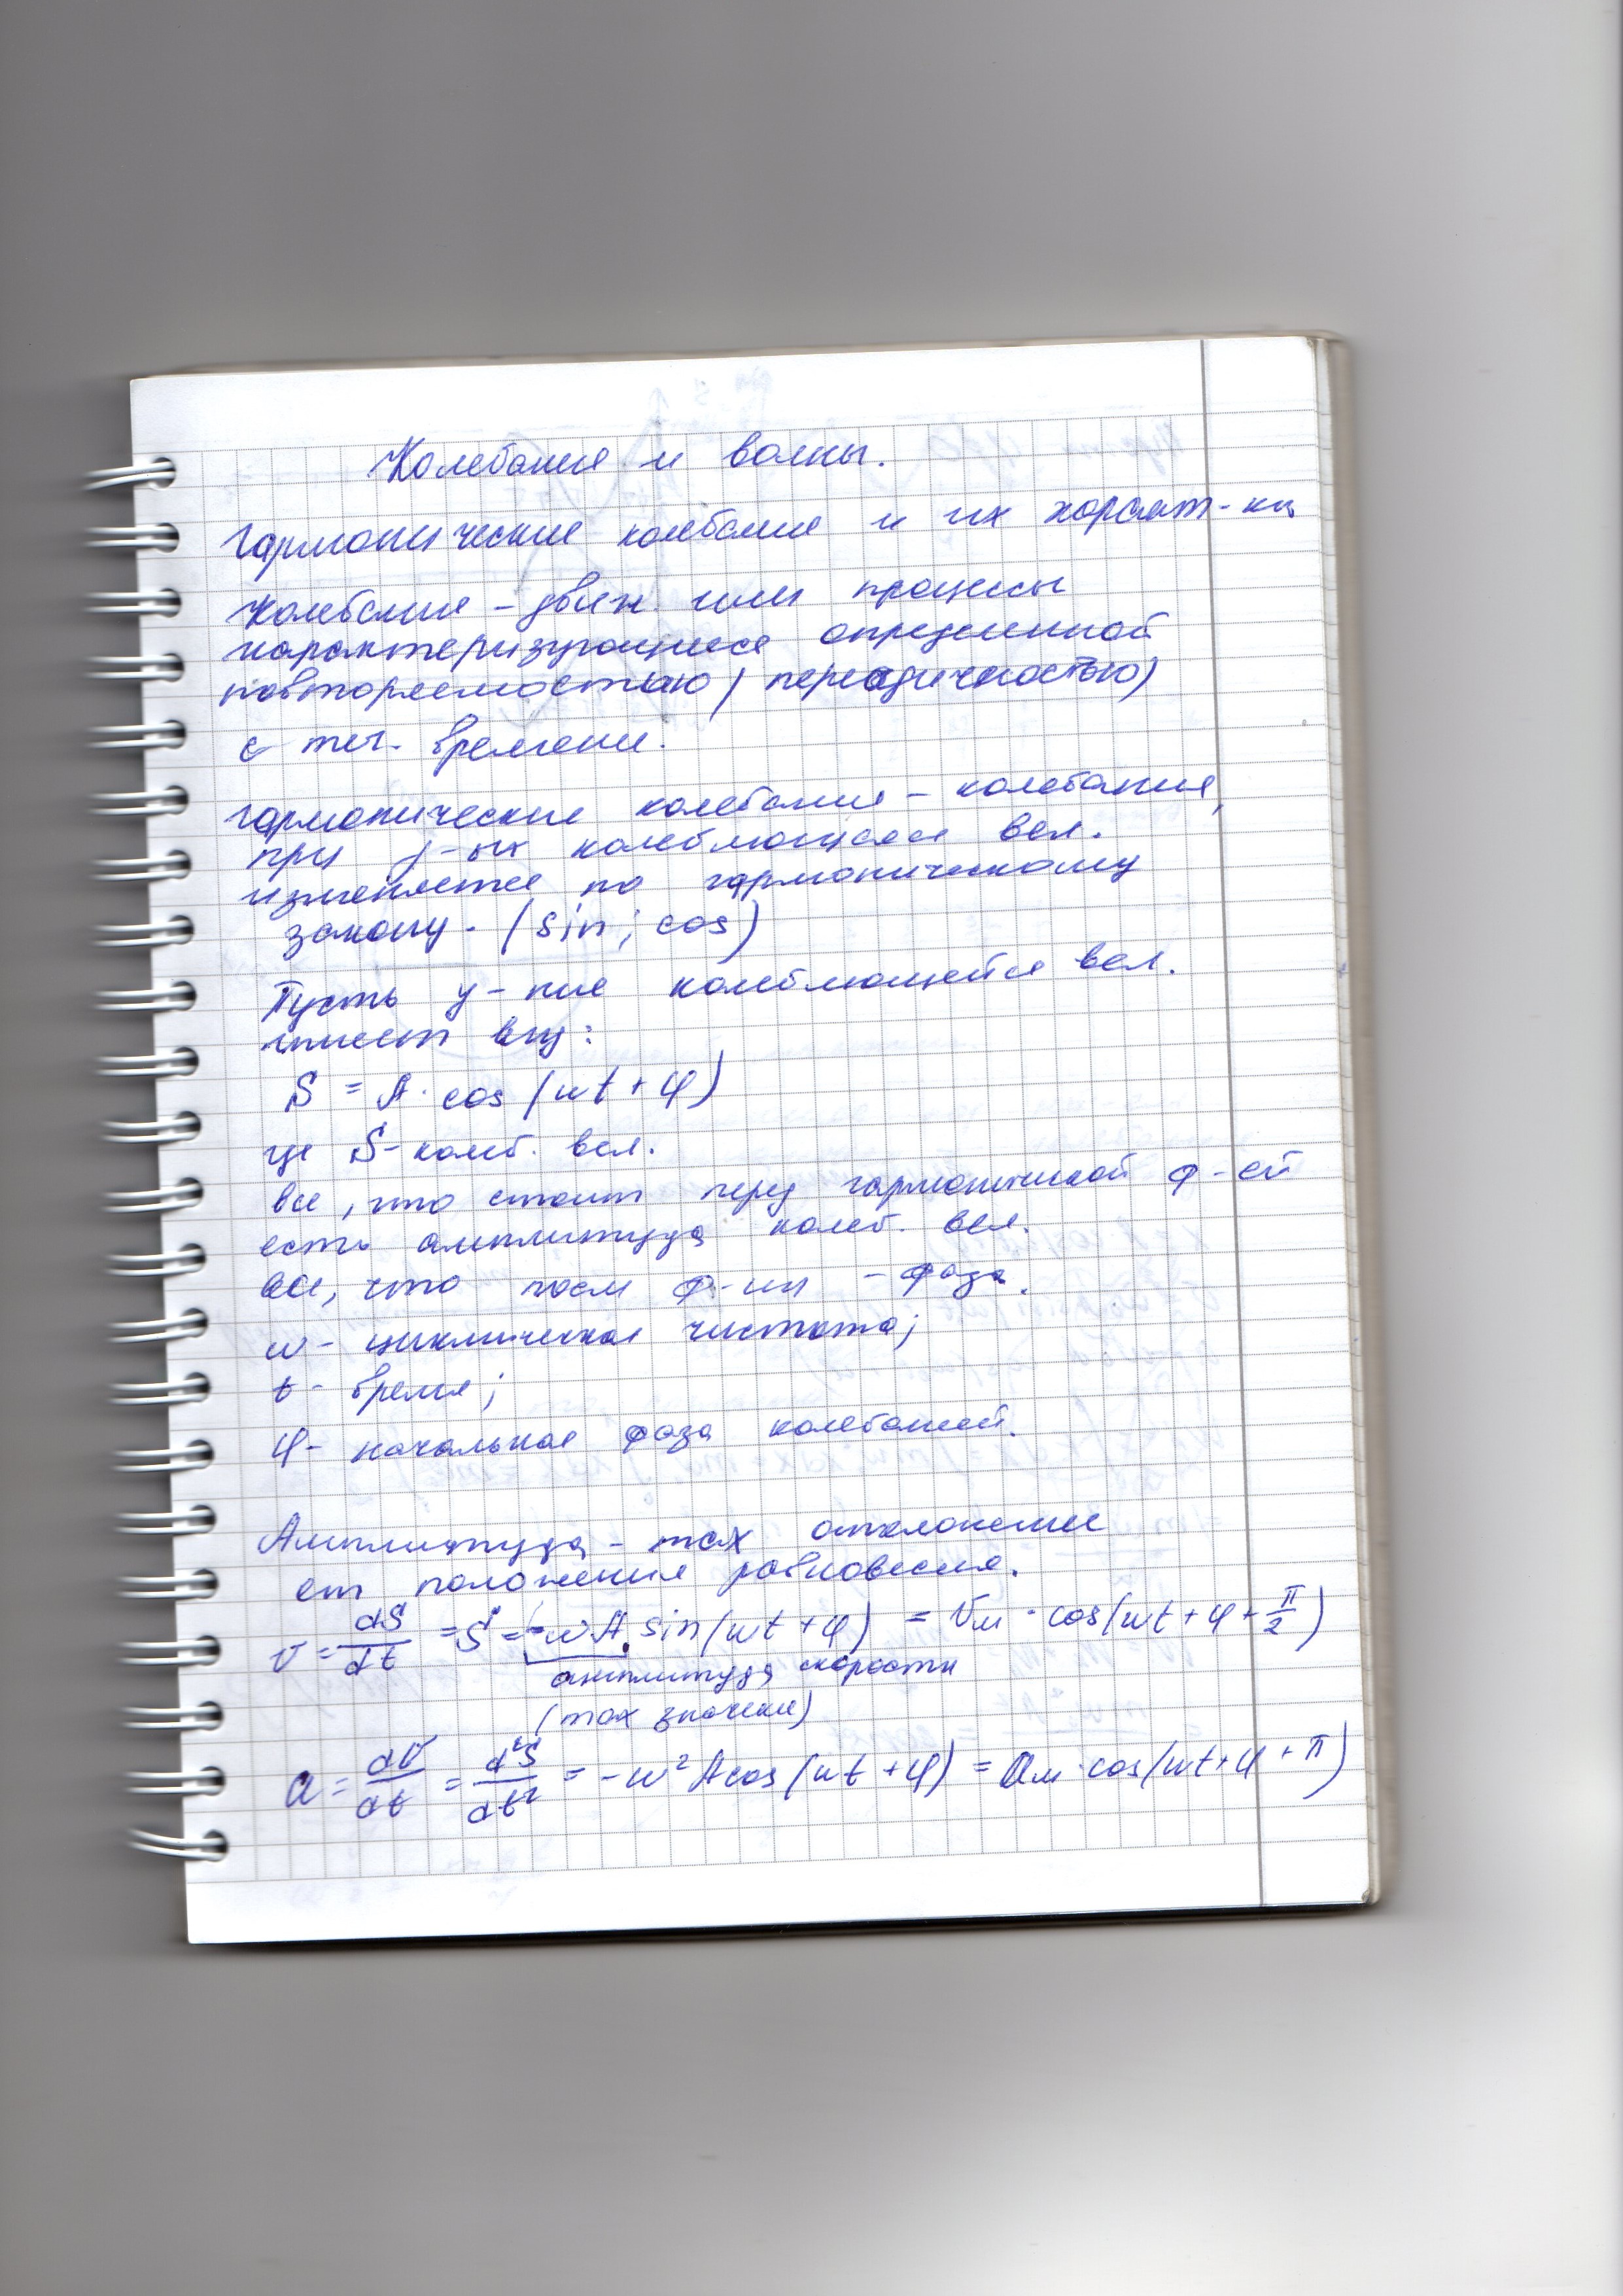 Колебания и волны.
Гармонические колебания и их характ-ки
Колебания - движ. или процессы
характеризующиеся определенной
повторяемостью (периодичностью)
с теч. времени.
гармонические колебания - колебания,
при к-ых колеблющаяся вел.
изменяется по гармоническому
закону. (sin; cos)
Пусть у-ние колеблющейся вел.
имеет вид:
S = A · cos (ωt + φ)
где S - колеб. вел.
все, что стоит перед гармонической ф-ей
есть амплитуда колеб. вел.
все, что после ф-ии - фаза.
ω - циклическая частота;
t - время;
φ - начальная фаза колебаний.
Амплитуда - max отклонение
от положения равновесия.
v = dS/dt = S' = -ωA sin(ωt + φ) = Vм · cos(ωt + φ + π/2)
амплитуда скорости
(max значение)
a = dv/dt = d²S/dt² = -ω²A cos(ωt + φ) = aм · cos(ωt + φ + π)